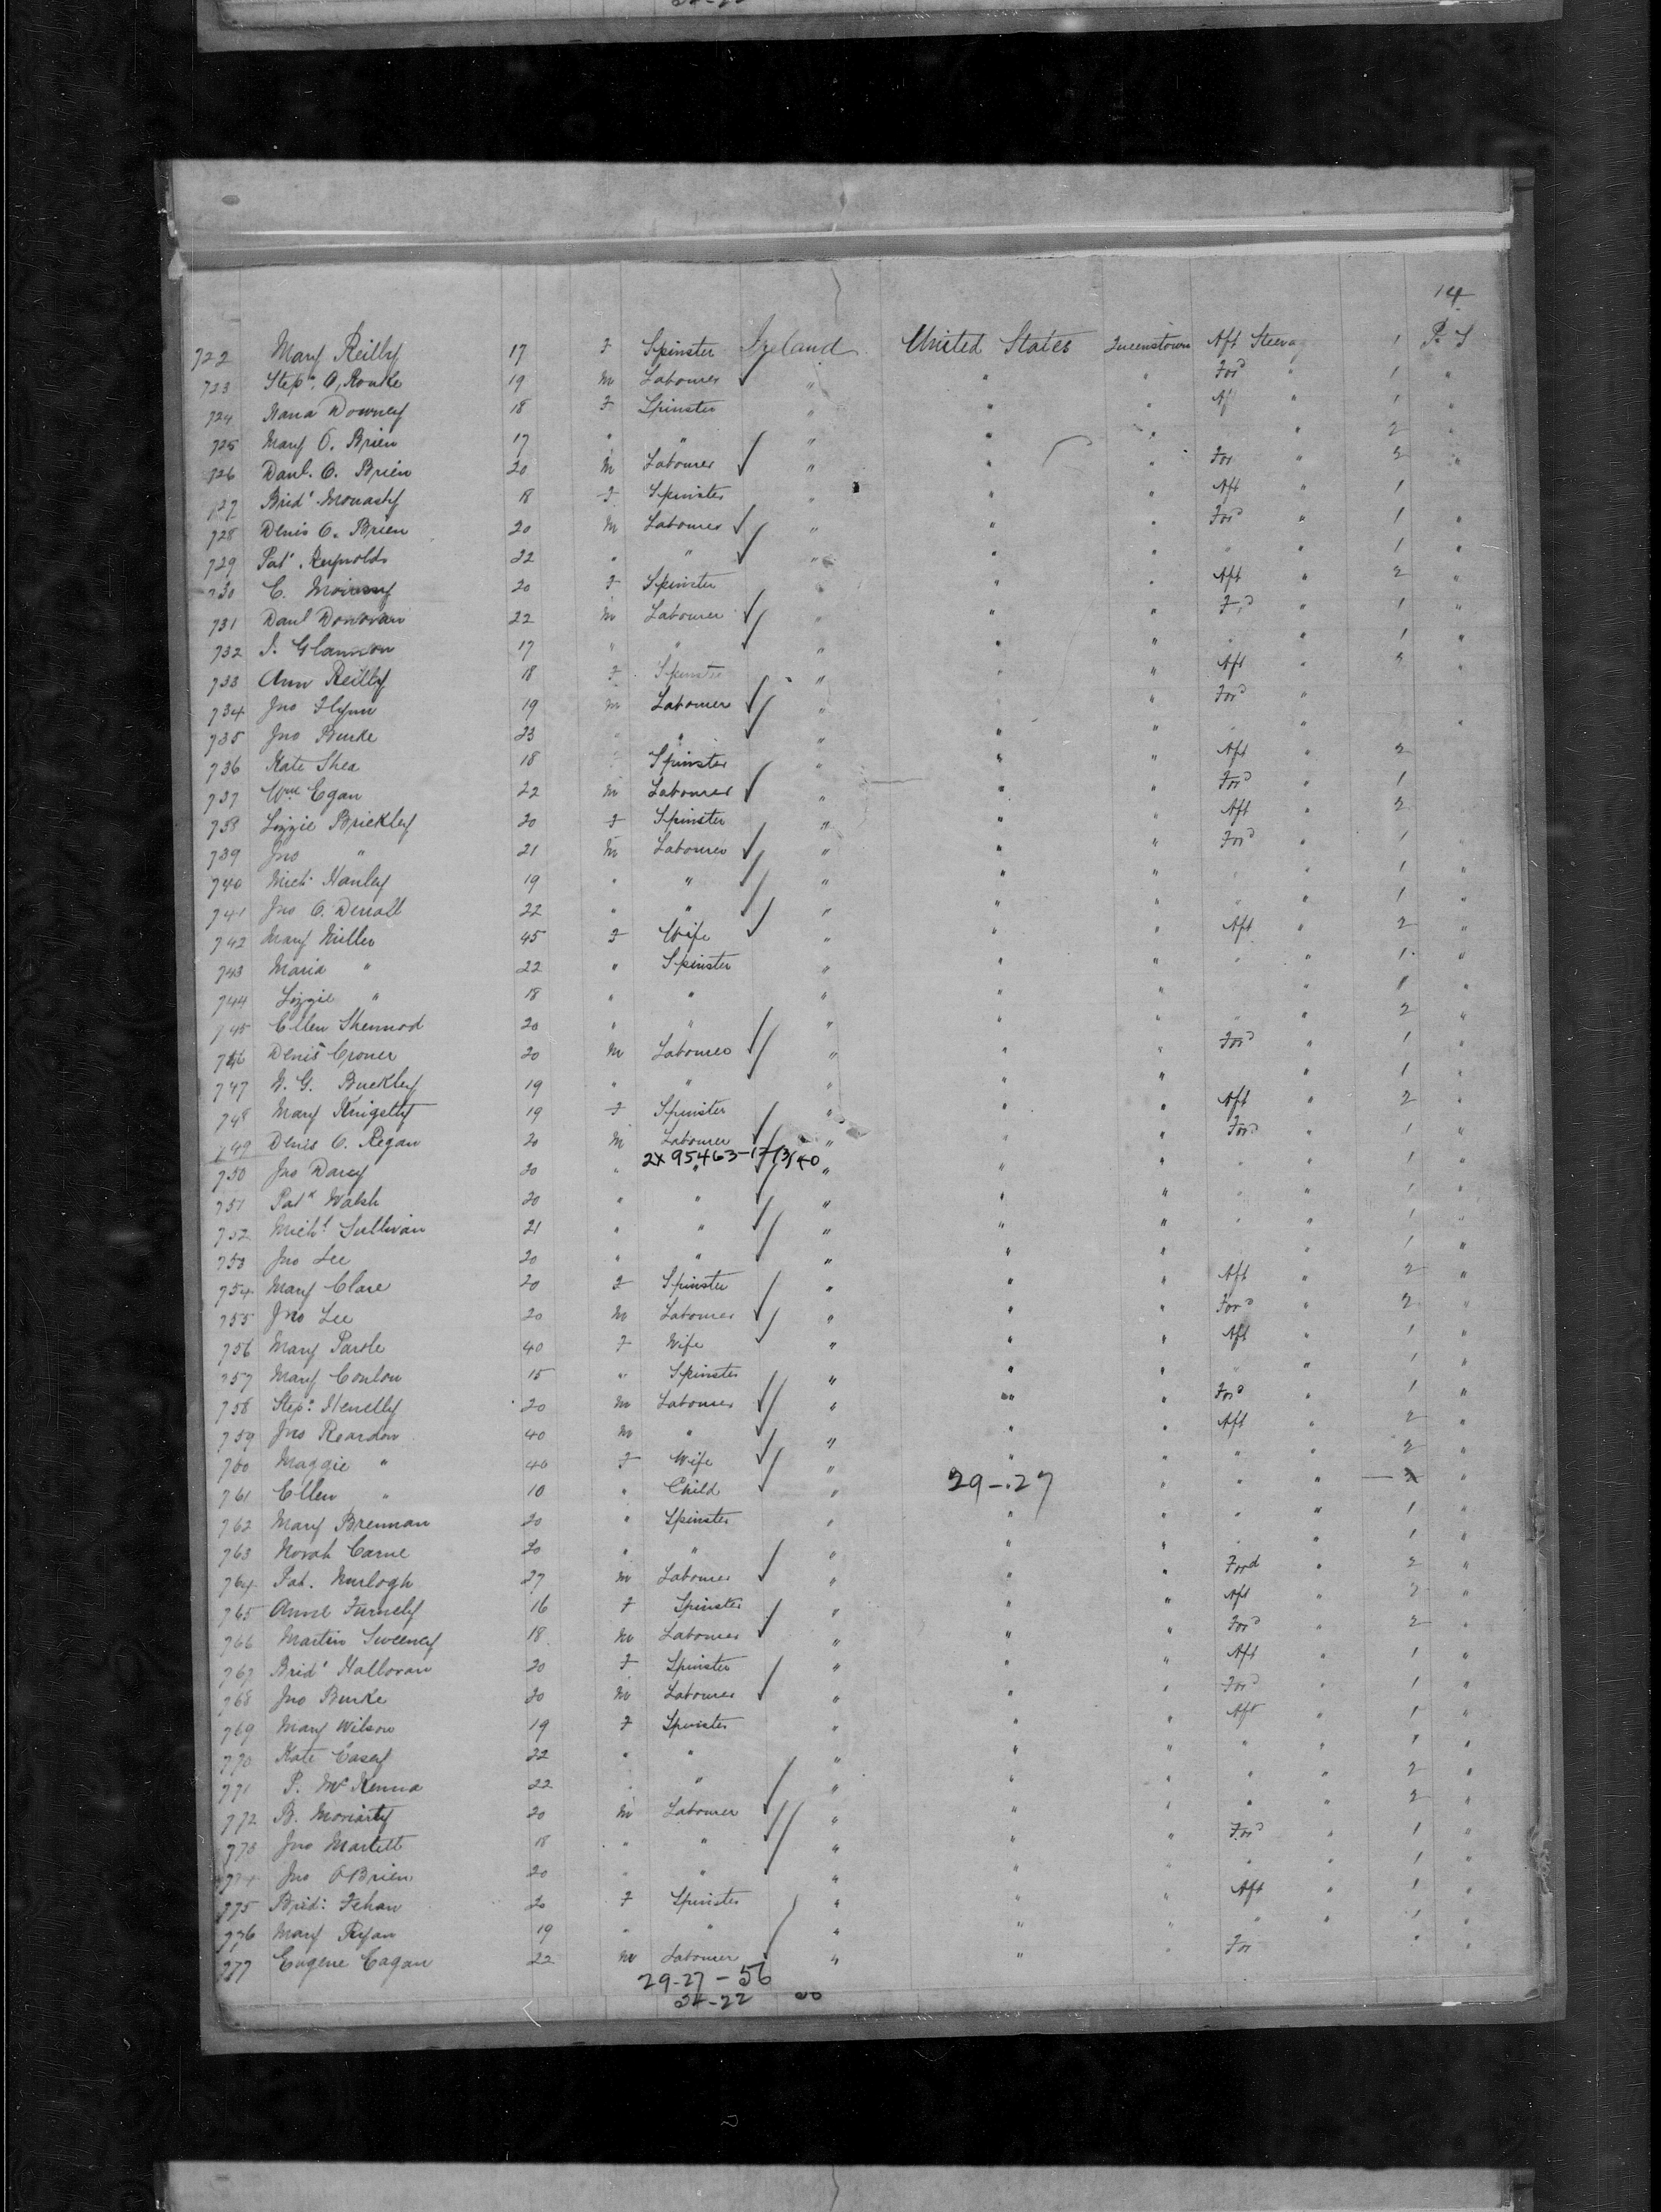 14
722 Mary Reilly 17 F Spinster Ireland United States Queenstown Aft Steerag 1 P. S
723 Stepn. O, Rouke 19 M Labourer " " " Ford " 1 "
724 Nana Downey 18 F Spinster " " " Aft " 1 "
725 Mary O. Brien 17 " " " " " " 2 "
726 Danl. O. Brien 20 M Labourer " " " For " 2 "
727 Bridt 18 F Spinster " " " Aft " 1
728 Denis O. Brien 20 M Labourer " " " Ford " 1 "
729 Patk. Reynolds 22 " " " " " " " 1 "
730 C. 20 F Spinster " " " Aft " 2 "
731 Danl Donovan 22 M Labourer " " " Fd " 1 "
732 J. Glannon 17 " " " " " " " 1 "
733 Ann Reilly 18 F Spinster " " " Aft " 2 "
734 Jno Flynn 19 M Labourer " " " Ford "
735 Jno Burke 23 " " " " " " " "
736 Kate Shea 18 Spinster " " " Aft " 2
737 Wm Egan 22 M Labourer " " " Ford " 1
738 Lizzie Brickley 20 F Spinster " " " Aft " 2
739 Jno " 21 M Labourer " " " Ford " 1 "
740 Mich. Hanley 19 " " " " " " " 1 "
741 Jno O. 22 " " " " " " " 1 "
742 Mary Miller 45 F Wife " " " Aft " 2 "
743 Maria " 22 " Spinster " " " " " 1 "
744 Lizzie " 18 " " " " " " 1 "
745 Ellen 20 " " " " " " " 2 "
746 Denis Croner 20 M Labourer " " " Ford " 1 "
747 W. G. Buckley 19 " " " " " " 1 "
748 Mary 19 F Spinster " " " Aft " 2 "
749 Denis O. Regan 20 M Labourer " " " Ford " 1 "
2X 95463-
750 Jno Darcy 20 " " " " " " " 1 "
751 Patk Walsh 20 " " " " " " " 1 "
752 Michl Sullivan 21 " " " " " " " 1 "
753 Jno Lee 20 " " " " " " " 1 "
754 Mary Clare 20 F Spinster " " " Aft " 2 "
755 Jno Lee 20 M Labourer " " " Ford " 2 "
756 Mary 40 F Wife " " " Aft " 1 "
757 Mary Conlon 15 " Spinster " " " " " 1 "
758 Stepn 20 M Labourer " " " Ford " 1 "
759 Jno Reardon 40 M " " " " Aft " 2 "
760 Maggie " 40 F Wife " " " " " 2 "
761 Ellen " 10 " Child " 29-.27 " " " 2 "
762 Mary Brennan 20 " Spinster " " " " " 1 "
763 Norah Carne 20 " " " " " " " 1 "
764 Pat. 27 M Labourer " " " Ford " 2 "
765 Anne 16 F Spinster " " " Aft " 2 "
766 Martin Sweeney 18 M Labourer " " " Ford " 2 "
767 Bridt Halloran 20 F Spinster " " " Aft " 1 "
768 Jno Burke 20 M Labourer " " " Ford " 1 "
769 Mary Wilson 19 F Spinster " " " Aft " 1 "
770 Kate Casey 22 " " " " " " " 1 "
771 P. McKenna 22 " " " " " " " 2 "
772 B. Moriarty 20 M Labourer " " " " " 2 "
773 Jno Martett 18 " " " " " Ford " 1 "
774 Jno O'Brien 20 " " " " " " " 1 "
775 Brid: Fehan 20 F Spinster " " " Aft " 1 "
776 Mary Ryan 19 " " " " " " " 1 "
777 Eugene Eagan 22 M Labourer " " " For " "
29-27-56
-22